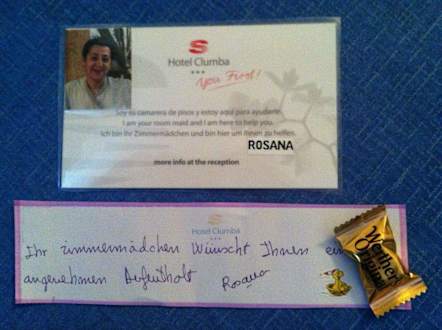 S
Hotel Clumba
***
You First!
Soy su camarera de pisos y estoy aquí para ayudarle.
I am your room maid and I am here to help you.
Ich bin Ihr Zimmermädchen und bin hier um Ihnen zu helfen.
ROSANA
more info at the reception
Hotel Clumba
***
Ihr zimmermädchen Wünscht Ihnen ein
angenehmen Aufeitholt Rosana
Werther's
Original